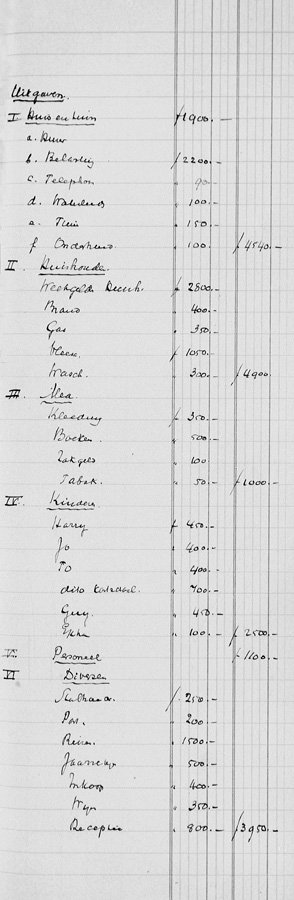 Uitgaven.
I Huis en tuin f 1900.-
a. Huur
b. Belasting f 2200.-
c. Telephon " 90-
d. " 100.-
e. Tuin " 150.-
f. Onderhoud " 100. f 4540.-
II. Huishoude.
Weekgeld f 2800.-
Brand " 400.-
Gas " 350.-
Vleesch. f 1050.-
Wasch. " 300.- f 4900.
III.
Kleeding f 350.-
Boeken " 500.-
Zakgeld " 100
Tabak. " 50.- f 1000.-
IV. Kinders
Harry f 450.-
Jo " 400.-
To " 400.-
dito " 700.-
Guy. " 450.-
" 100.- f 2500.-
V. Personeel f 1100.-
VI Diversen
f 250.-
" 200.-
Reizen. " 1500.-
" 500.-
Inkoop " 400.-
Wijn " 350.-
Receptie " 800.- f 3950.-